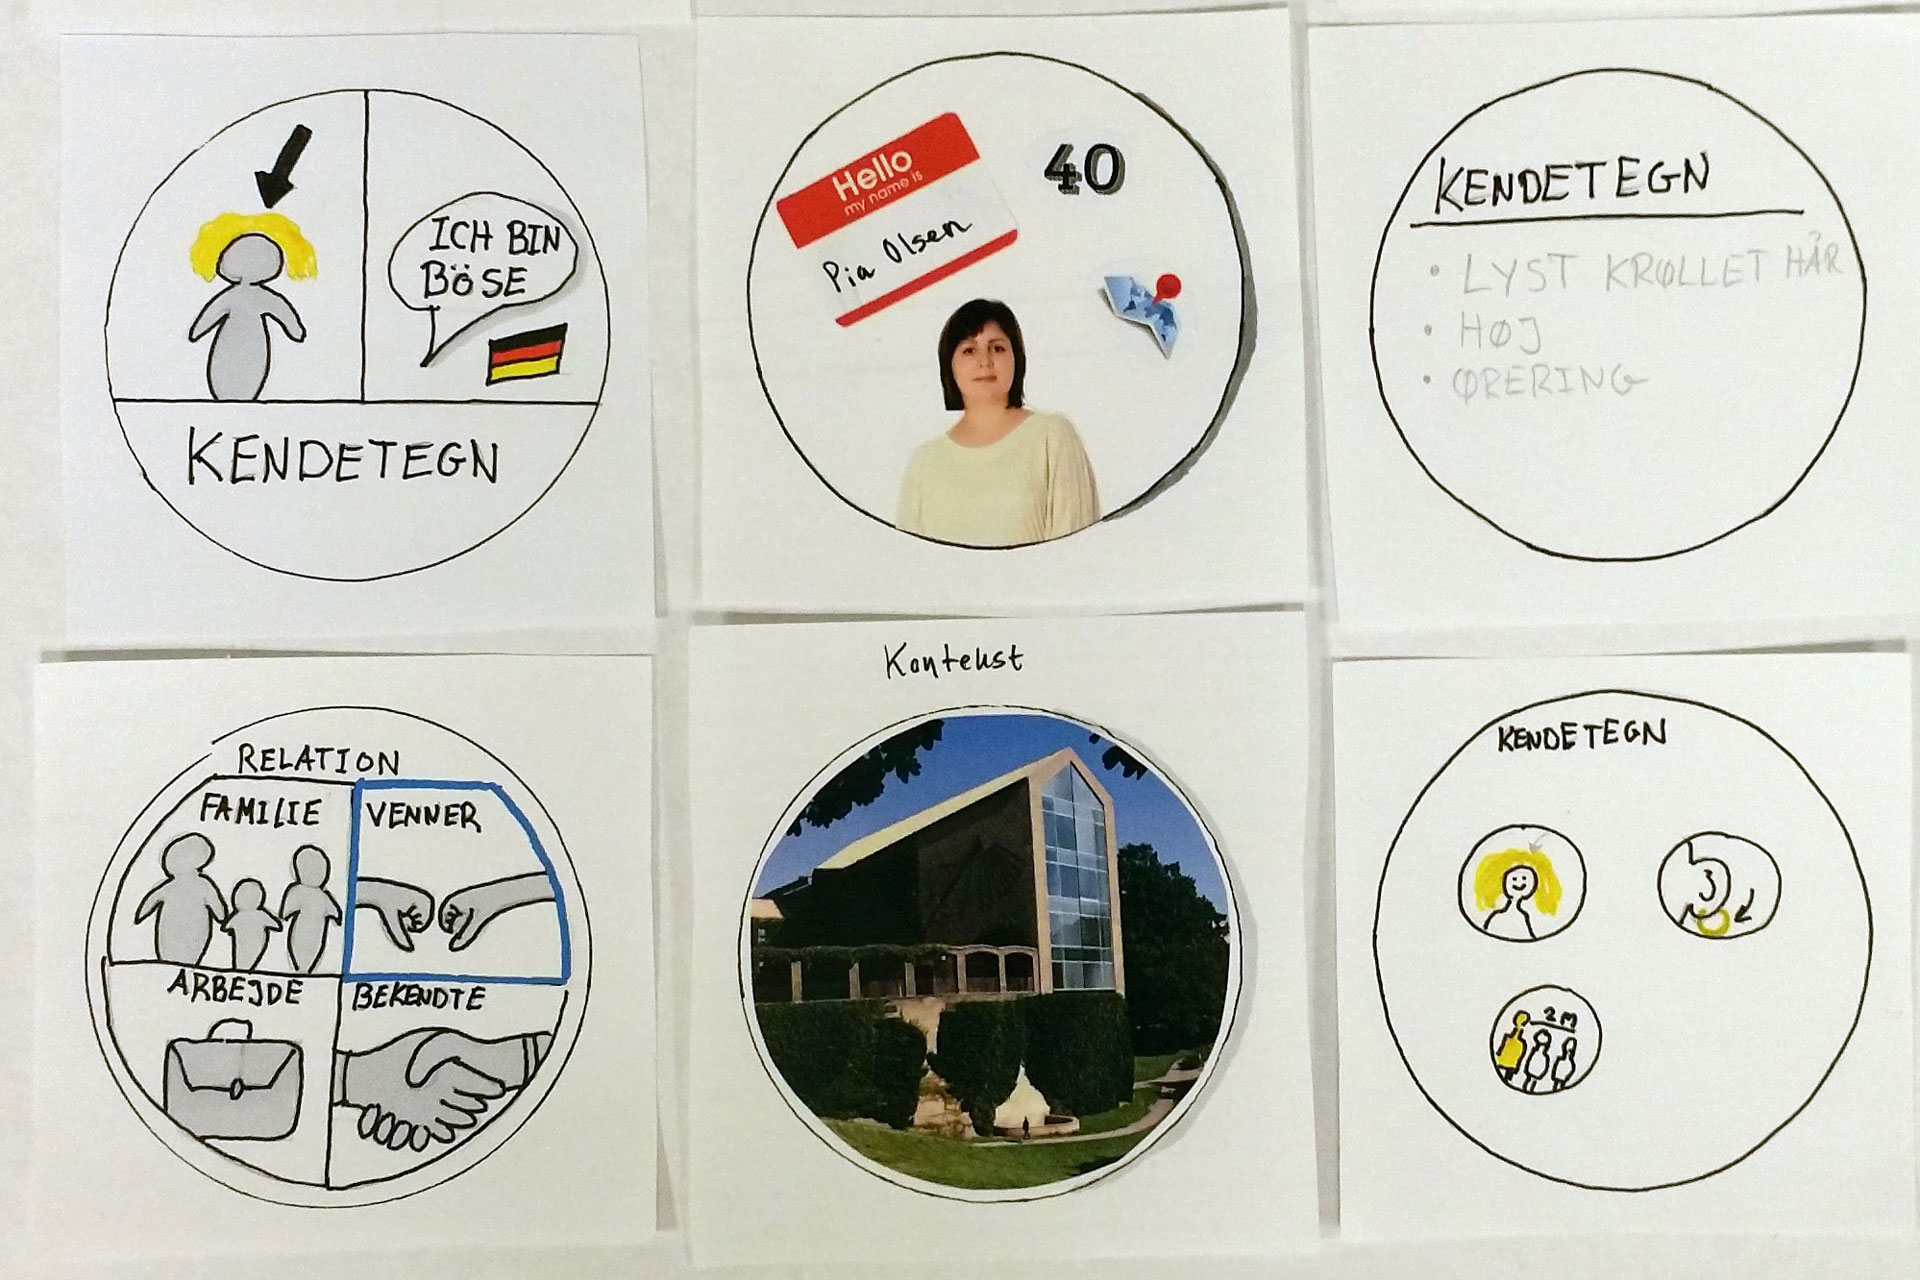 ICH BIN
BÖSE
KENDETEGN
Hello
my name is
Pia Olsen
40
KENDETEGN
• LYST KRØLLET HÅR
• HØJ
• ØRERING
RELATION
FAMILIE
VENNER
ARBEJDE
BEKENDTE
Kontekst
KENDETEGN
2M